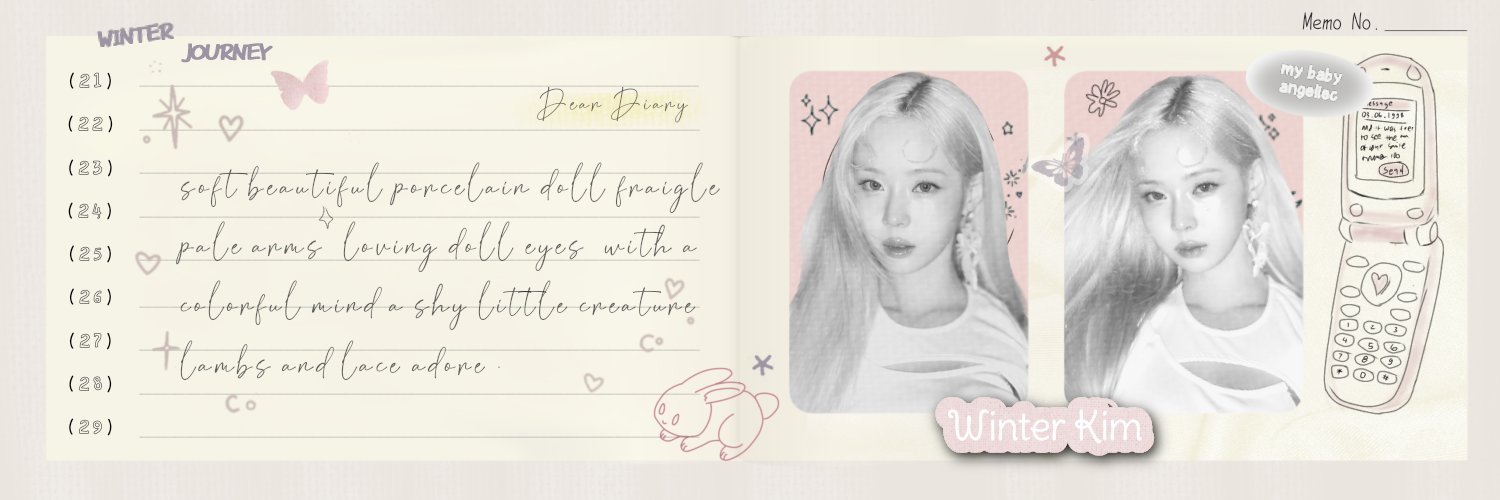 WINTER
JOURNEY
Memo No.
(21)
(22)
(23)
(24)
(25)
(26)
(27)
(28)
(29)
Dear Diary
soft beautiful porcelain doll fraigle
pale arms loving doll eyes with a
colorful mind a shy little creature
lambs and lace adore .
Co
Co
my baby
angelisc
message
03.06.1998
and it was
to see the
of your smile
Send
1 2 3
4 5 6
7 8 9
* 0 #
Winter Kim